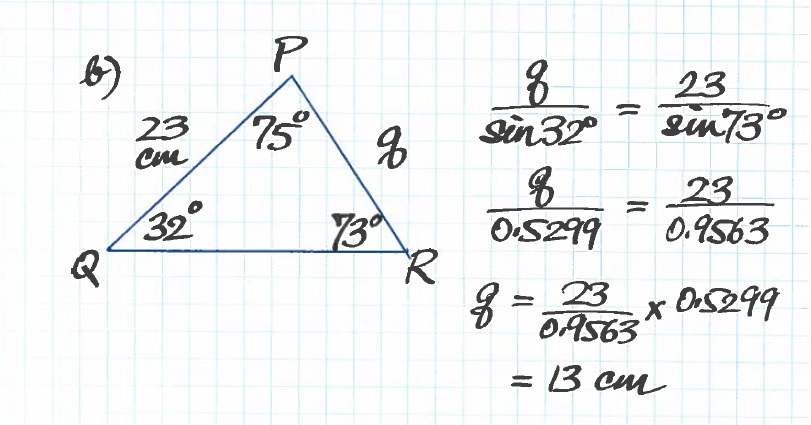 b)
P
75°
23
cm
q
32°
73°
Q
R
q/sin32° = 23/sin73°
q/0.5299 = 23/0.9563
q = 23/0.9563 x 0.5299
= 13 cm